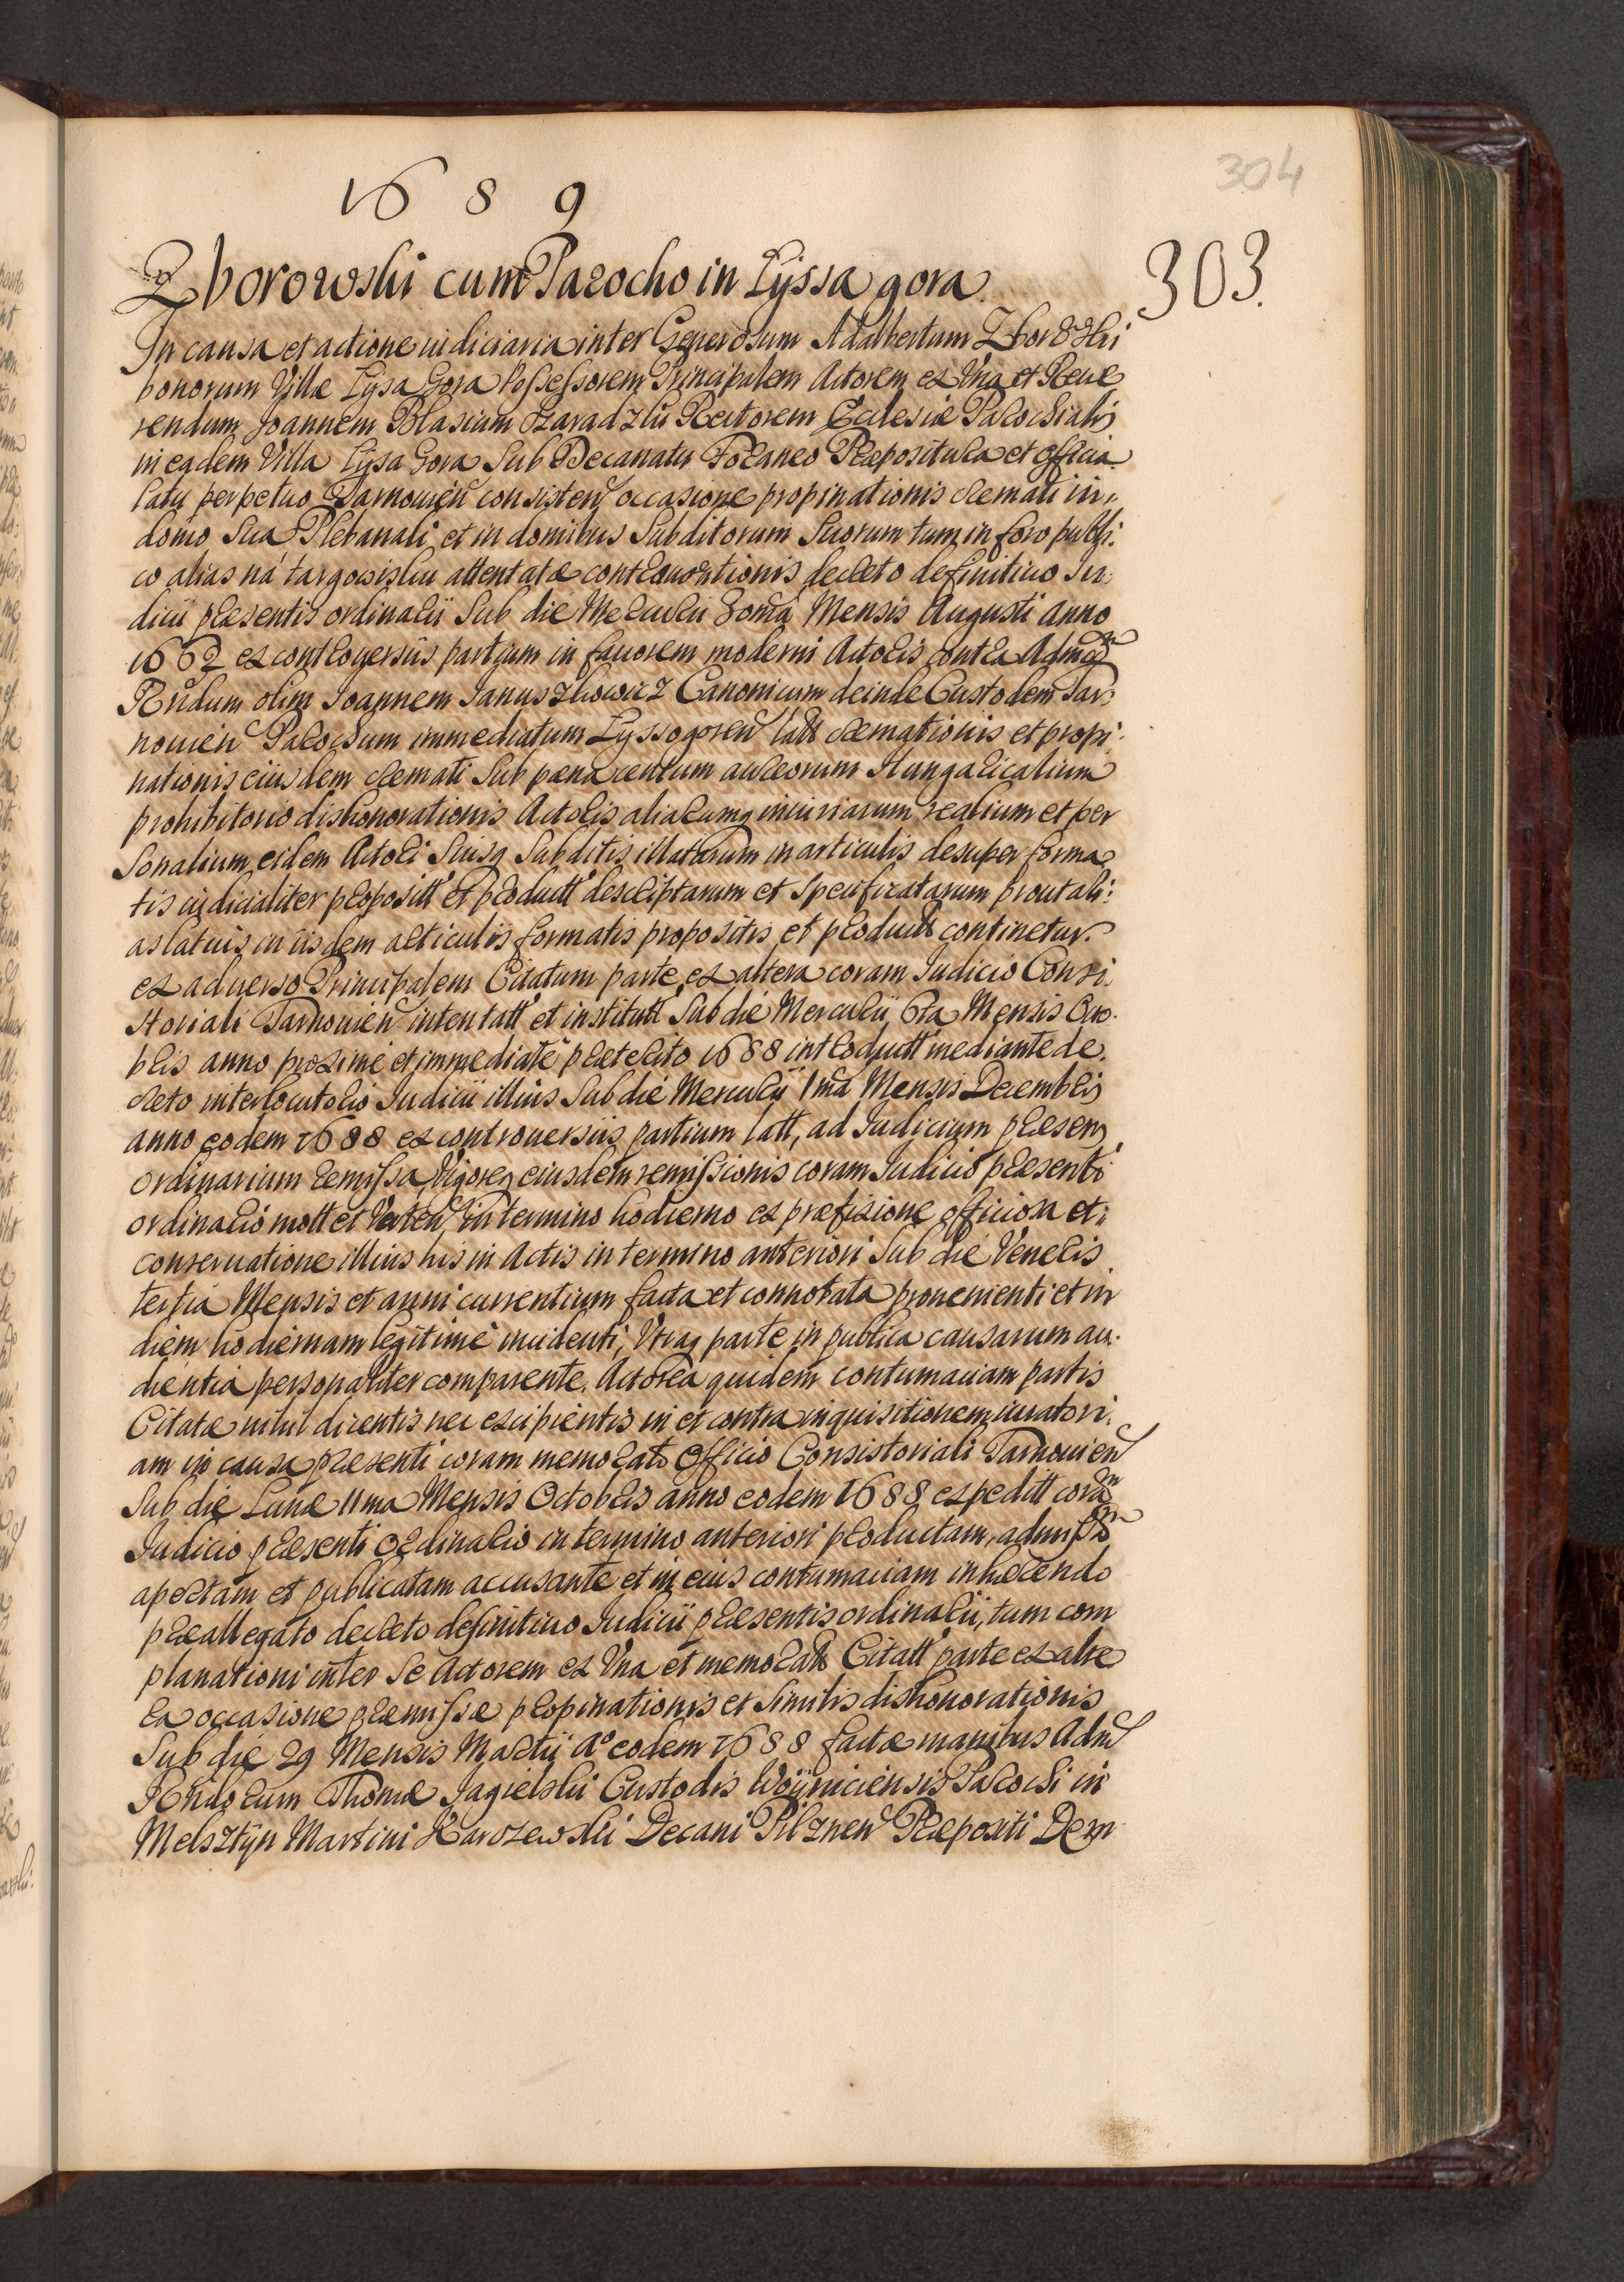 304
1689
303.
Zborowski cum Parocho in Lyssa gora.
In causa et actione iudiciaria inter Generosum Adalbertum Zborowski
bonorum Villæ Lysa Gora Possessorem Principalem Actorem ex Vna et Reue
rendum Joannem Blasium Ecclesiæ Parochialis
in eadem Villa Lysa Gora Sub Decanatu Foraneo Præpositura et officia
latu perpetuo Tarnouien consisten occasione propinationis cremati in
domo Sua Plebanali et in domibus Subditorum Suorum tum in foro publi:
co alias ná targowisku attentatæ decreto definitiuo Iu:
dicii præsentis ordinarii Sub die Mercurii Mensis Augusti anno
1662 ex controuersiis partium in fauorem moderni Actoris contra Admodum
Rndum olim Joannem Januszkowicz Canonicum deinde Custodem Tar:
nouien Parochum immediatum Lyssogoren latt cremationis et propi:
nationis eiusdem cremati Sub pæna centum aureorum Hungaricalium
prohibitorio dishonorationis Actoris aliarumq iniuriarum realium et per
Sonalium eidem Actori Suisq Subditis illatarum in articulis desuper forma
tis iudicialiter propositt et productt descriptarum et Specificatarum prout ali:
as latius in iisdem articulis formatis propositis et productt continetur.
ex aduerso Principalem Citatum parte ex altera coram Iudicio Consi:
storiali Tarnouien intentatt et institutt Sub die Mercurii 6ta Mensis Octo:
bris anno proxime et immediate præterito 1688 introductt mediante de:
creto interlocutorio Iudicii illius Sub die Mercurii 1ma Mensis Decembris
anno eodem 1688 ex controuersiis partium latt, ad Iudicium præsens
ordinarium remissa, Vigoreq eiusdem remissionis coram Iudicio præsenti
ordinario mott et Verten, in termino hodierno ex præfixione officiosa et
conseruatione illius his in Actis in termino anteriori Sub die Veneris
tertia Mensis et anni currentium facta et connotata proueniente et in
diem hodiernam legitime incidenti, Vtraq parte in publica causarum au:
dientia personaliter comparente. Actorea quidem contumaciam partis
Citatæ nihil dicentis nec excipientis in et contra inquisitionem iuratori:
am in causa præsenti coram memorato Officio Consistoriali Tarnouien
Sub die Lunæ 11ma Mensis Octobris anno eodem 1688 expeditt coram
Iudicio præsenti Ordinario in termino anteriori productam, admissam
apertam et publicatam accusante et in eius contumaciam inhærendo
præallegato decreto definitiuo Iudicii præsentis ordinarii, tum com
planationi inter Se Actorem ex Vna et memoratt Citatt parte ex alte
ra occasione præmissæ propinationis et Similis dishonorationis
Sub die 29 Mensis Martii Aº eodem 1688 factæ manibus Adm
Rndorum Thomæ Jagielski Custodis Woyniciensis Parochi in
Melsztyn Martini Decani Pilznen Præpositi Dem